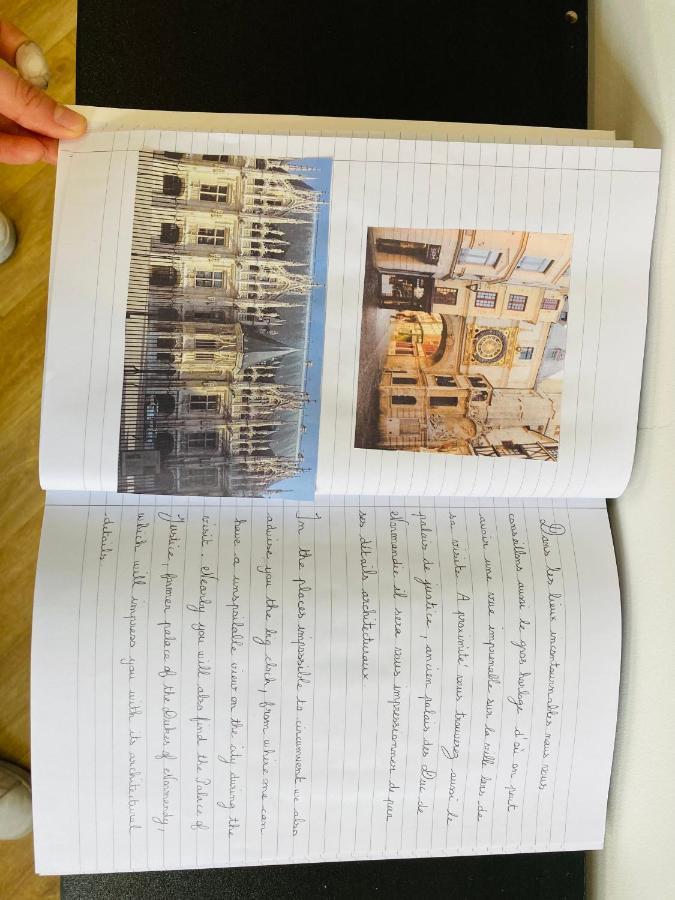 Dans les lieux incontournables nous vous
conseillons aussi le gros horloge d'où on peut
avoir une vue imprenable sur la ville lors de
sa visite. A proximité vous trouverez aussi le
palais de justice, ancien palais des Duc de
Normandie il sera vous impressionner de par
ses détails architecturaux
In the places impossible to circumvent we also
advise you the big clock, from where one can
have a unspoilable view on the city during the
visit. Nearly you will also find the Palace of
Justice, former palace of the Dukes of Normandy,
which will impress you with its architectural
details.